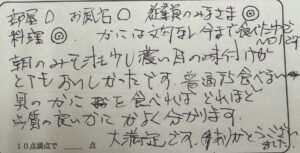 部屋 〇 お風呂 〇 従業員の皆さま 〇
料理 ◎ かには文句なし今まで食べた中で
No.1です
朝のみそ汁も少し濃い目の味付けが
とてもおいしかったです。普通なら食べない
具のかにを食べれば どれほど
品質の良いかにか よく分かります。
大満足です。ありがとうござい
ました。
10点満点で 点